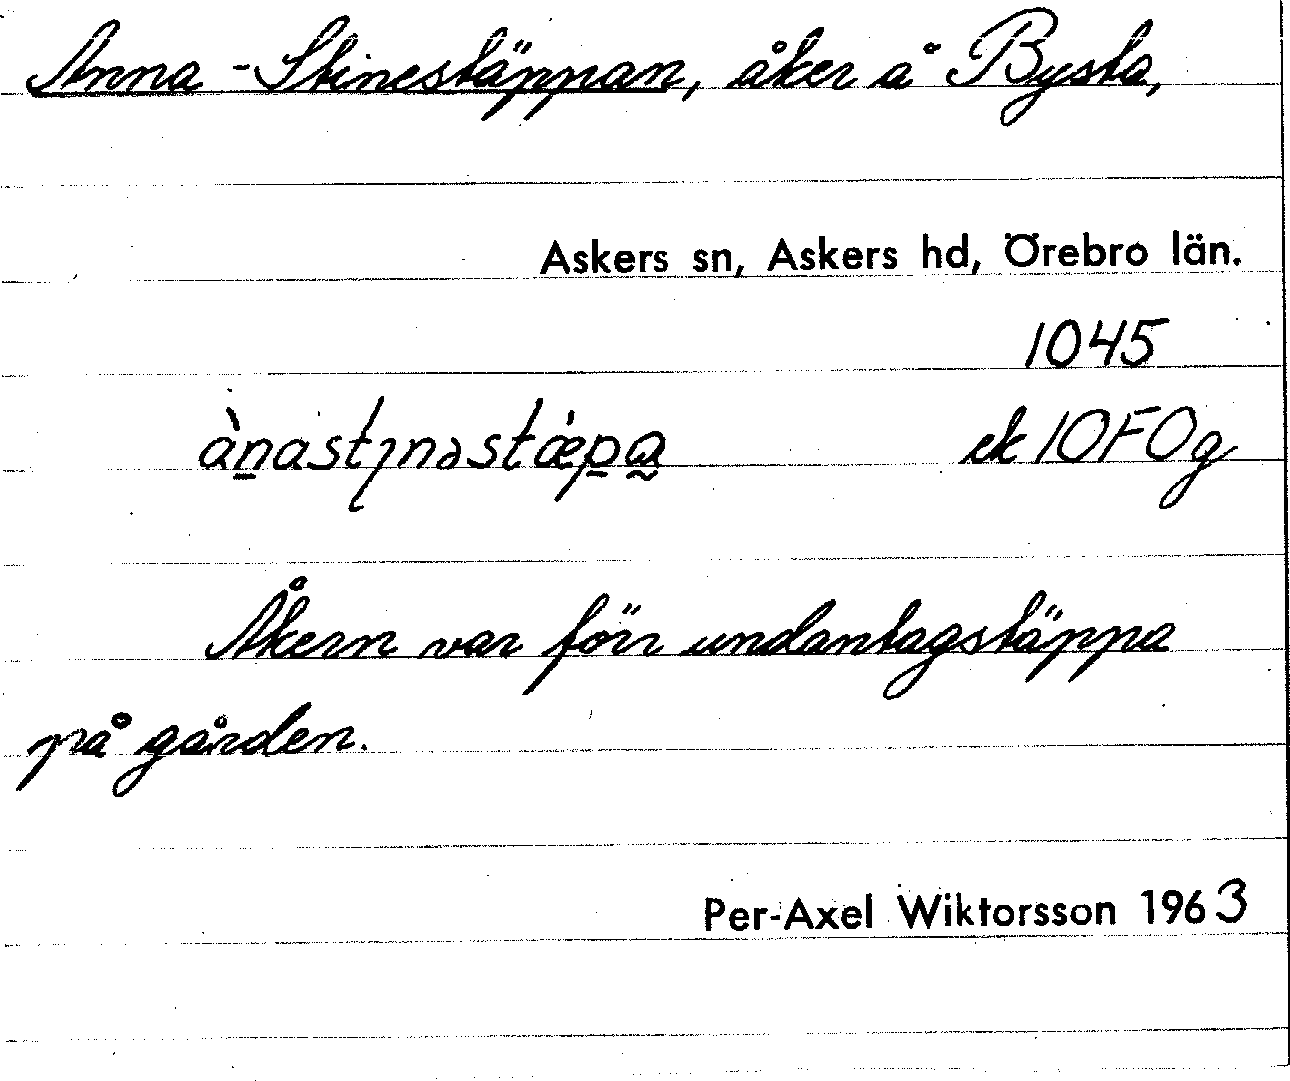 Anna-Stinestäppan, åker å Bysta,
Askers sn, Askers hd, Örebro län.
1045
ànastɿnəstǽpa ek 10FOg
Åkern var förr undantagstäppa
på gården.
Per-Axel Wiktorsson 1963